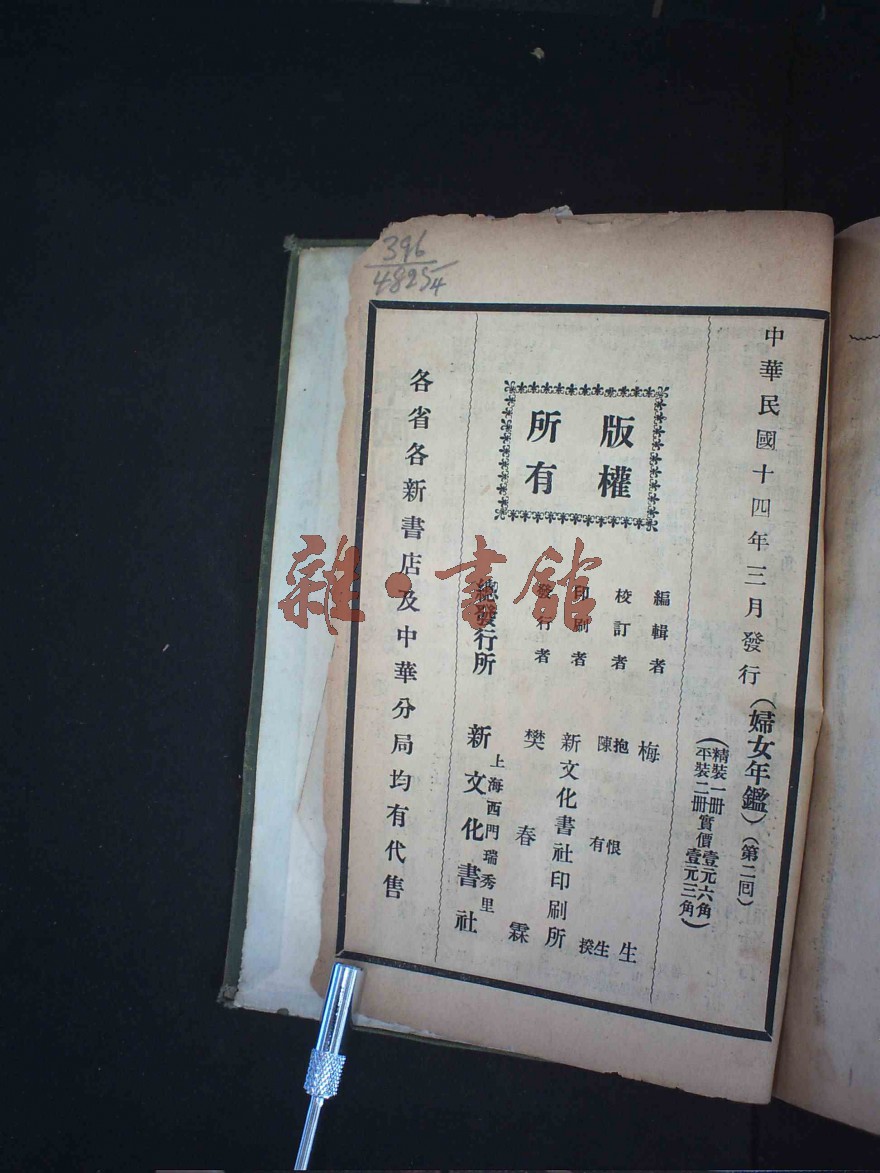 396
48254
中華民國十四年三月發行（婦女年鑑）（第二回）
（精裝一冊實價壹元六角
平裝二冊　　壹元三角）
版權
所有
編輯者　梅　生
校訂者　抱恨生
陳有揆
印刷者　新文化書社印刷所
發行者　樊春霖
總發行所　上海西門瑞秀里
新文化書社
各省各新書店及中華分局均有代售
雜·書館